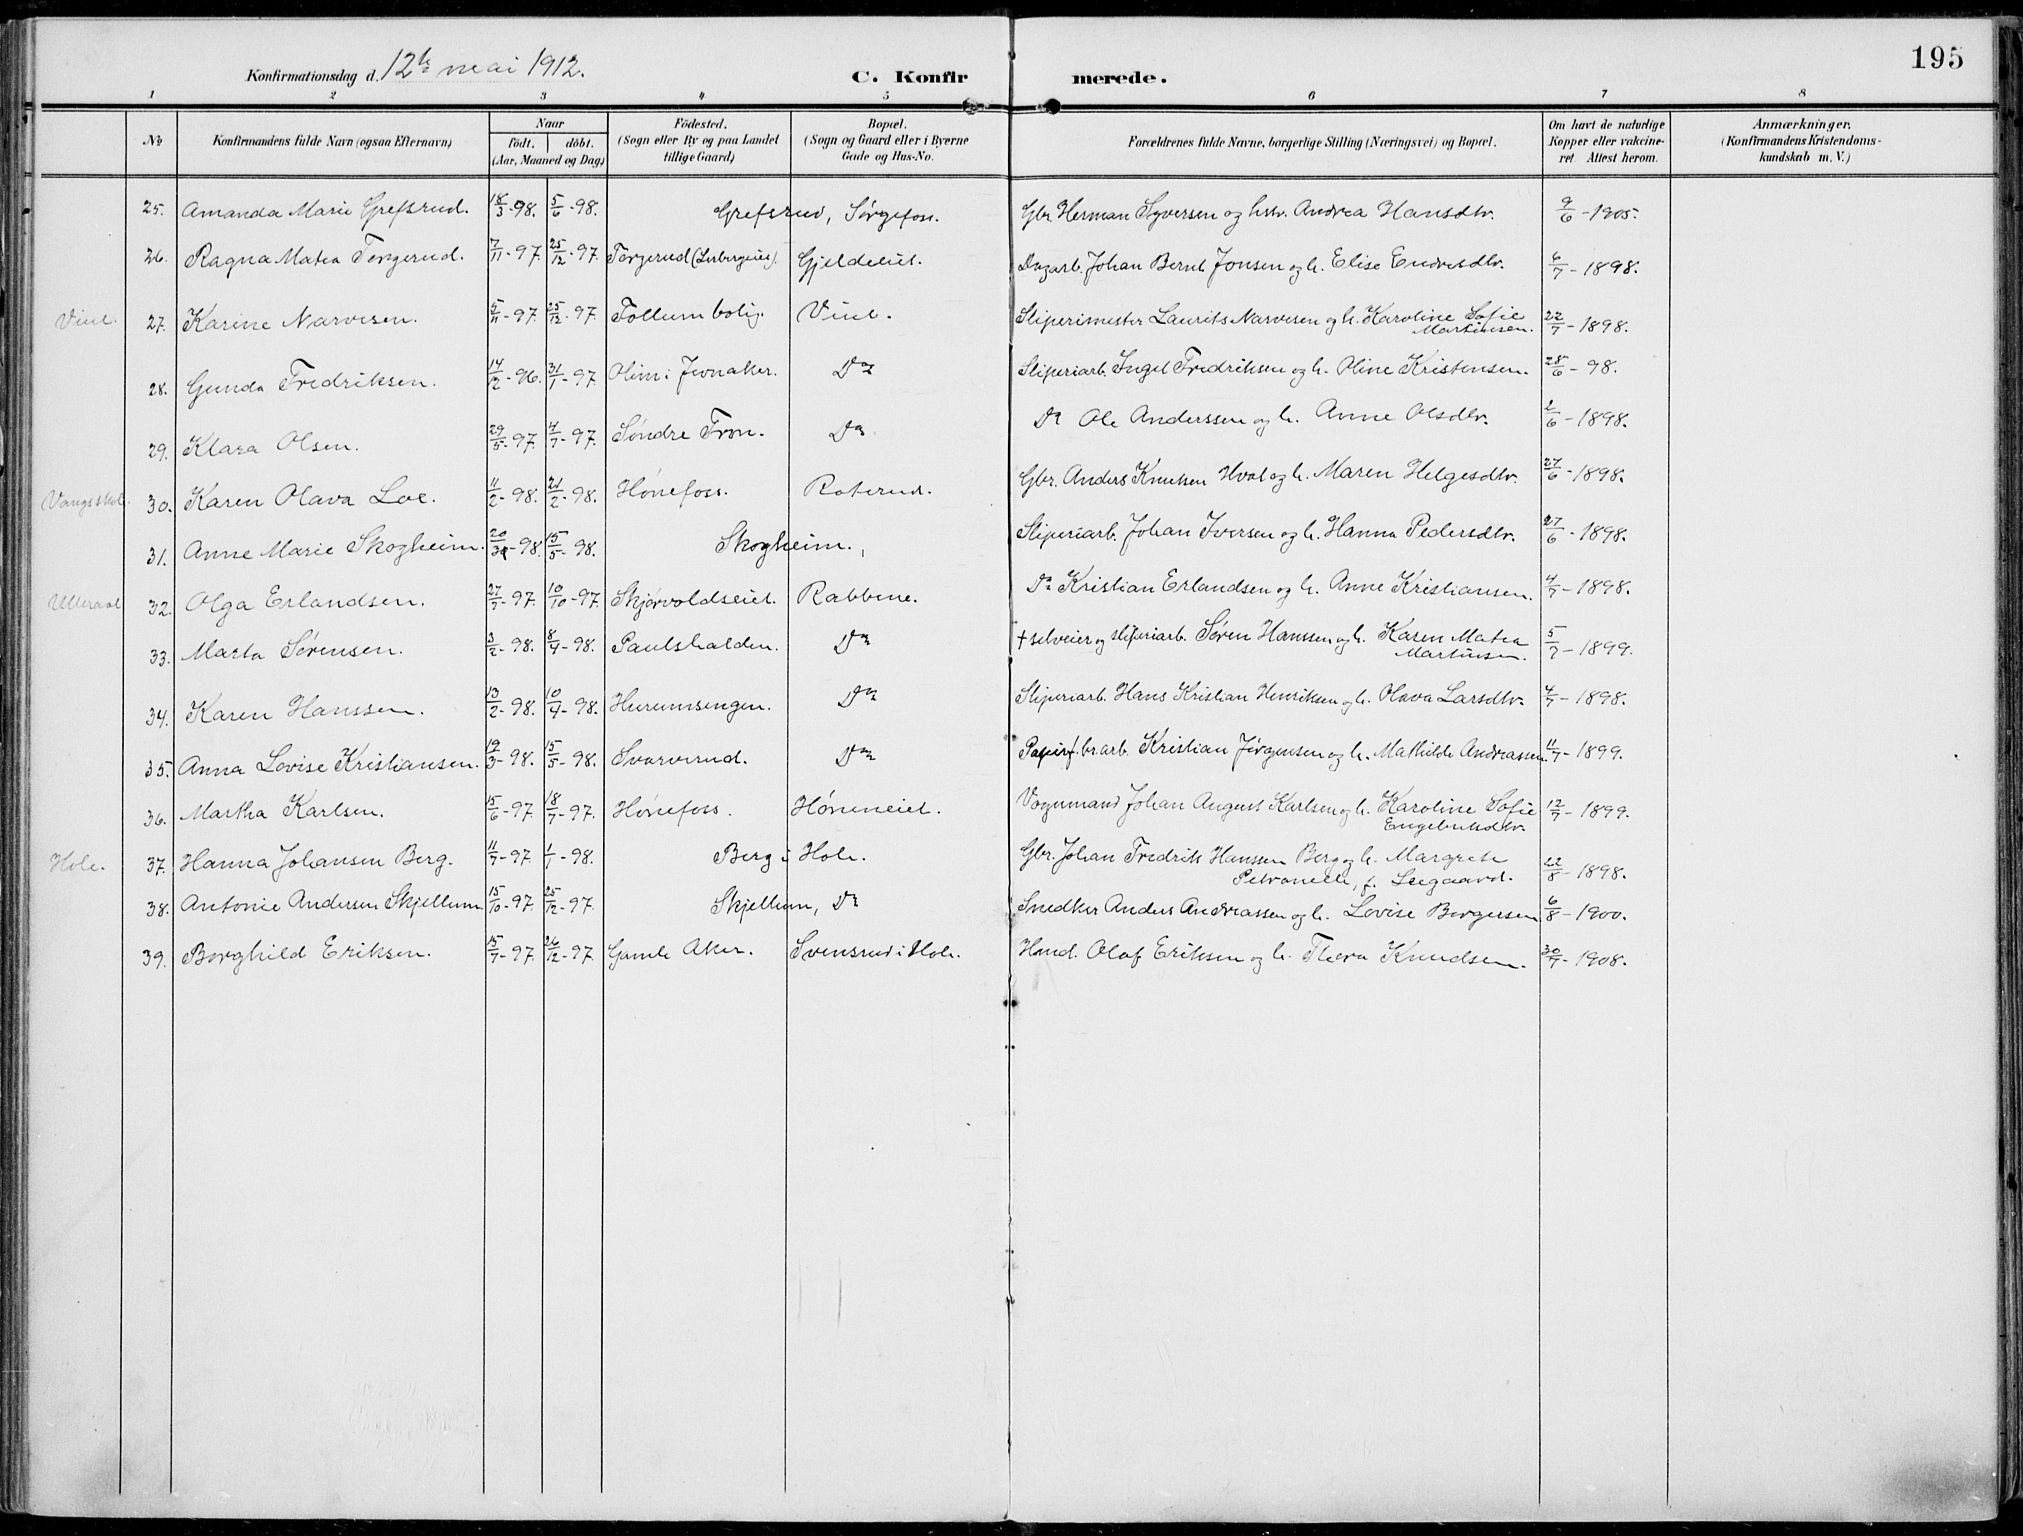 195
Konfirmationsdag d. 12te mai 1912.
C. Konfir merede.
1 2 3 4 5 6 7 8
No Konfirmandens fulde Navn (ogsaa Efternavn) Naar födt. döbt. (Aar, Maaned og Dag) Födested. (Sogn eller By og paa Landet tillige Gaard) Bopæl. (Sogn og Gaard eller i Byerne Gade og Hus-No. Forældrenes fulde Navne, borgerlige Stilling (Næringsvei) og Bopæl. Om havt de naturlige Kopper eller vakcineret Attest herom. Anmærkninger. (Konfirmandens Kristendomskundskab m. V.)
25. Amanda Marie Grefsrud. 18/3-98. 5/6-98. Grefsrud, Sørgefoss. Gbr. Herman Syversen og hstr. Andrea Hansdtr. 9/6-1905.
26. Ragna Matea Torgerud. 7/11-97. 25/12-97. Torgerud Gjeldeiet. Dagarb. Johan Bernt Jonsen og h. Elise Endresdtr. 6/7-1898.
Viul. 27. Karine Narvesen. 5/11-97. 25/12-97. Follum bolig. Viul. Sliperimester Laurits Narvesen og h. Karoline Sofie Martinsen. 22/7-1898.
28. Gunda Fredriksen. 14/12-96. 31/1-97. Olim i Jevnaker. Do Sliperiarb. Ingel Fredriksen og h. Oline Kristensen. 28/6-98.
29. Klara Olsen. 29/5-97. 4/7-97. Søndre Tron. Do Do Ole Anderssen og h. Anne Olsdtr. 2/6-1898.
Vangsskol. 30. Karen Olava Loe. 11/2-98. 21/2-98. Hønefoss. Roterud. Gbr. Anders Knutsen Hval og h. Maren Helgesdtr. 27/6-1898.
31. Anne Marie Skogheim. 20/3-98. 15/5-98. Skogheim. Sliperiarb. Johan Iversen og h. Hanna Pedersdtr. 27/6-1898.
Ulleraal 32. Olga Erlandsen. 27/7-97. 10/10-97. Skjørvoldseiet. Rabbene. Do Kristian Erlandsen og h. Anne Kristiansen. 4/7-1898.
33. Marta Sørensen. 3/2-98. 8/4-98. Paulshalden. Do + selveier og sliperiarb. Søren Hanssen og h. Karen Matea Martinsen. 5/7-1899.
34. Karen Hanssen. 13/2-98. 10/4-98. Hurumsengen. Do Sliperiarb. Hans Kristian Henriksen og h. Olava Larsdtr. 4/7-1898.
35. Anna Lovise Kristiansen. 19/3-98. 15/5-98. Svarverud. Do Papirf.brarb. Kristian Jørgensen og h. Mathilde Andreassen. 11/7-1899.
36. Martha Karlsen. 15/6-97. 18/7-97. Hønefoss. Høneneiet. Vognmand Johan August Karlsen og h. Karoline Sofie Engebretsdtr. 12/7-1899.
Hole. 37. Hanna Johansen Berg. 11/7-97. 1/1-98. Berg i Hole. Gbr. Johan Fredrik Hanssen Berg og h. Margrete Petronelle, f. Leegaard. 22/8-1898.
38. Antonie Andersen Skjellum. 15/10-97. 25/12-97. Skjellum, Do Snedker Anders Andreassen og h. Lovise Borgersen. 6/8-1900.
39. Borghild Eriksen. 15/7-97. 26/12-97. Gamle Aker. Svensrud i Hole. Hand. Olaf Eriksen og h. Thora Knudsen. 30/7-1908.